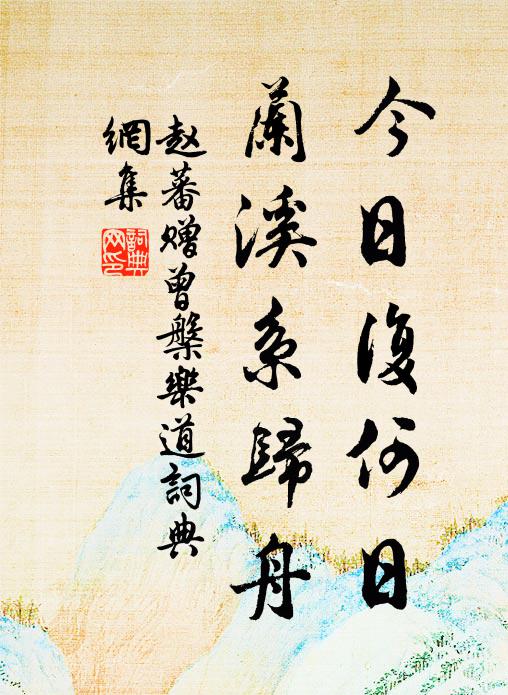 今日復何日
蘭溪系歸舟
赵蕃赠曾槃樂道詞典
網集
詞典
网印